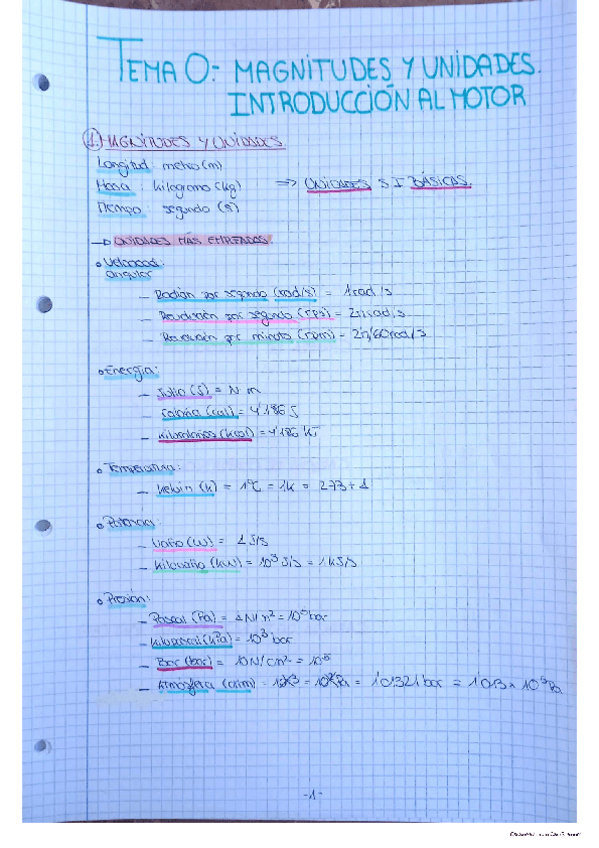 TEMA 0:- MAGNITUDES Y UNIDADES.
INTRODUCCIÓN AL MOTOR
1. MAGNITUDES Y UNIDADES.
Longitud: metro (m)
Masa: kilogramo (kg) => UNIDADES SI BÁSICAS.
Tiempo: segundo (s)
UNIDADES MÁS EMPLEADAS.
Velocidad:
angular
- Radián por segundo (rad/s) = 1rad/s
- Revolución por segundo (rps) = 2π rad/s
- Revolución por minuto (rpm) = 2π/60 rad/s
Energía:
- Julio (J) = N m
- Caloría (cal) = 4'186 J
- Kilocalorías (kcal) = 4'186 kJ
Temperatura:
- Kelvin (k) = 1ºC = 1K = 273+1
Potencia:
- Vatio (w) = 1 J/s
- Kilovatio (kw) = 10³ J/s = 1 kJ/s
Presión:
- Pascal (Pa) = 1N/m² = 10⁵ bar
- Kilopascal (kPa) = 10³ bar
- Bar (bar) = 10N/cm² = 10⁵
- Atmósfera (atm) = 1'01321 bar = 1013 x 10⁵ Pa
-1-